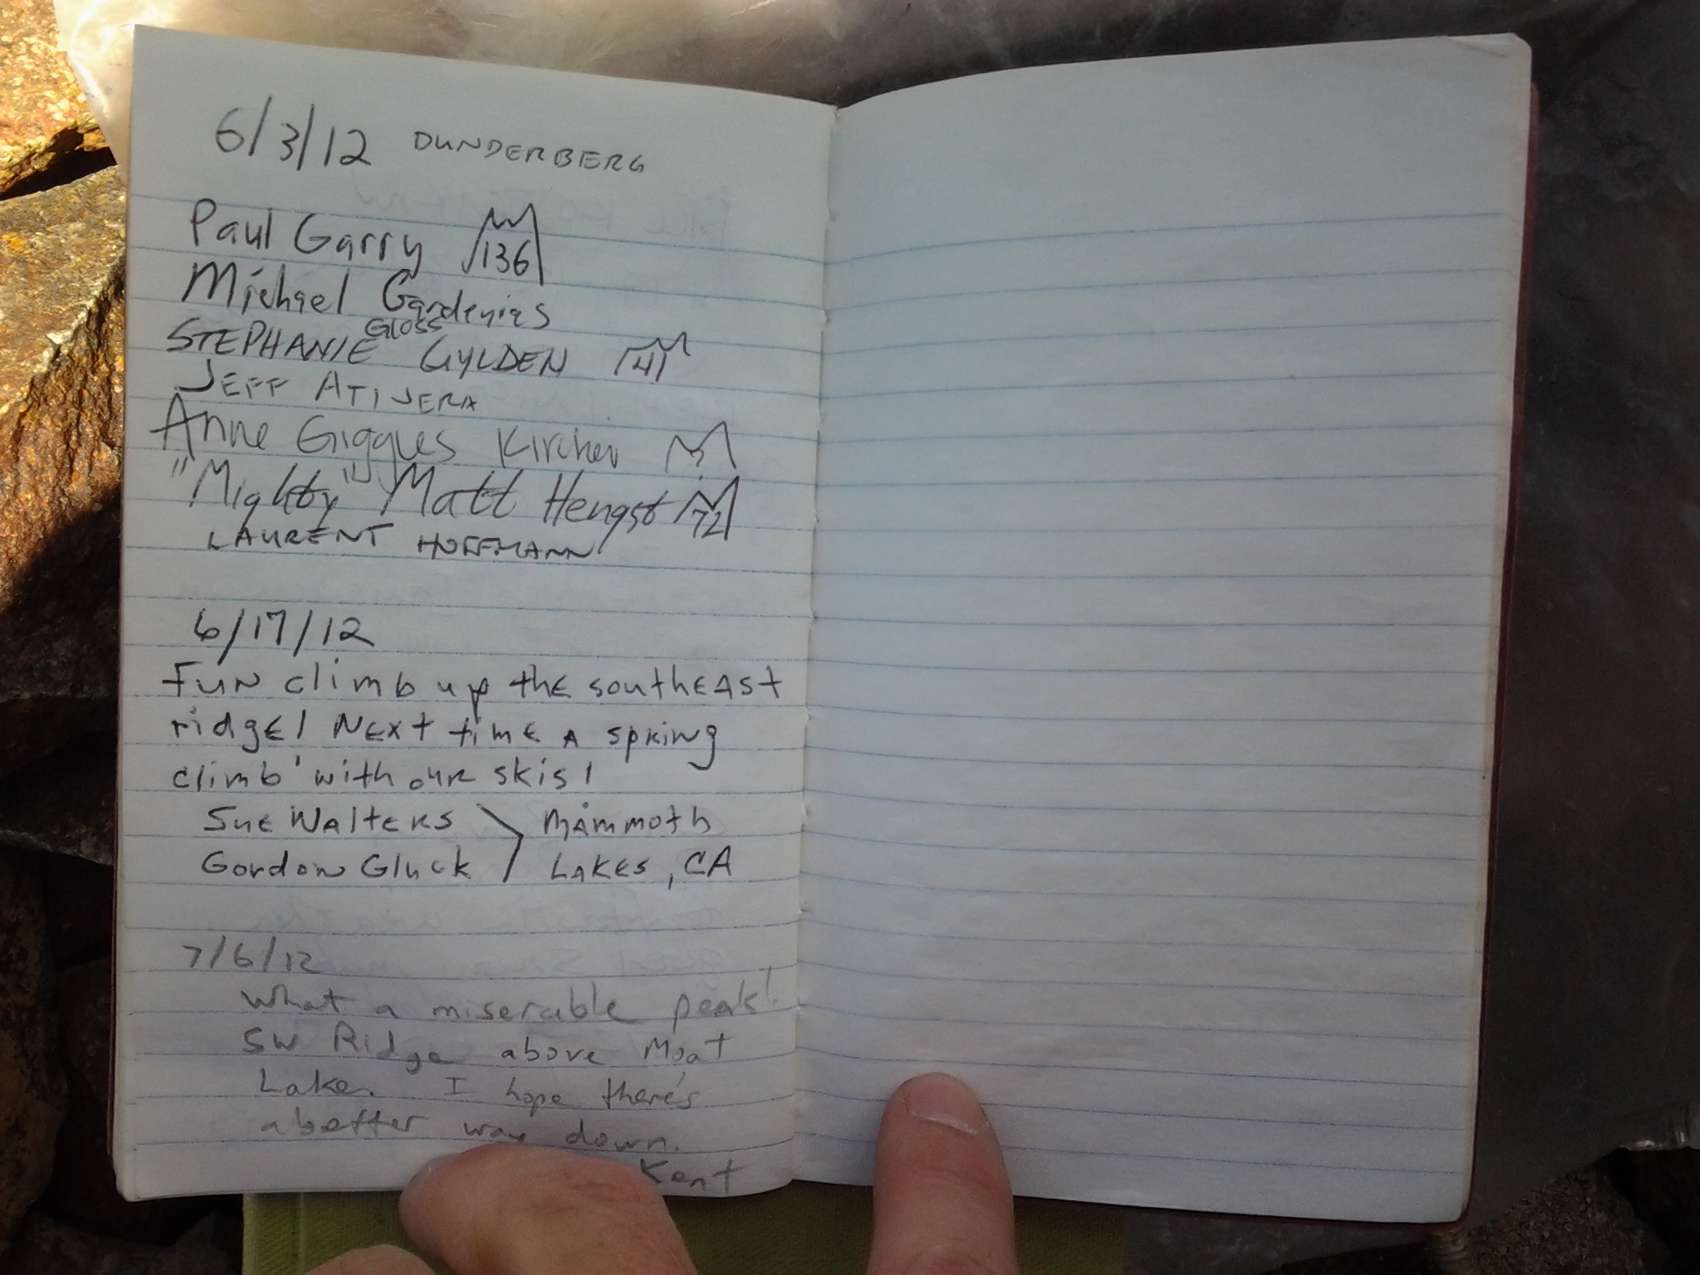 6/3/12 DUNDERBERG
Paul Garry 136
Michael Gardenias
Gloss
STEPHANIE GYLDEN 141
JEFF ATIJERA
Anne Giggles Kircher
"Mighty" Matt Hengst 72
LAURENT HOFFMANN
6/17/12
FUN climb up the southEAST
ridgE! NExt timE A spRiNg
climb with ouR skis!
SuE WAltERs MAmmoth
GordoN Gluck LAKEs, CA
7/6/12
What a miserable peak!
SW Ridge above Moat
Lake. I hope there's
a better way down.
Kent